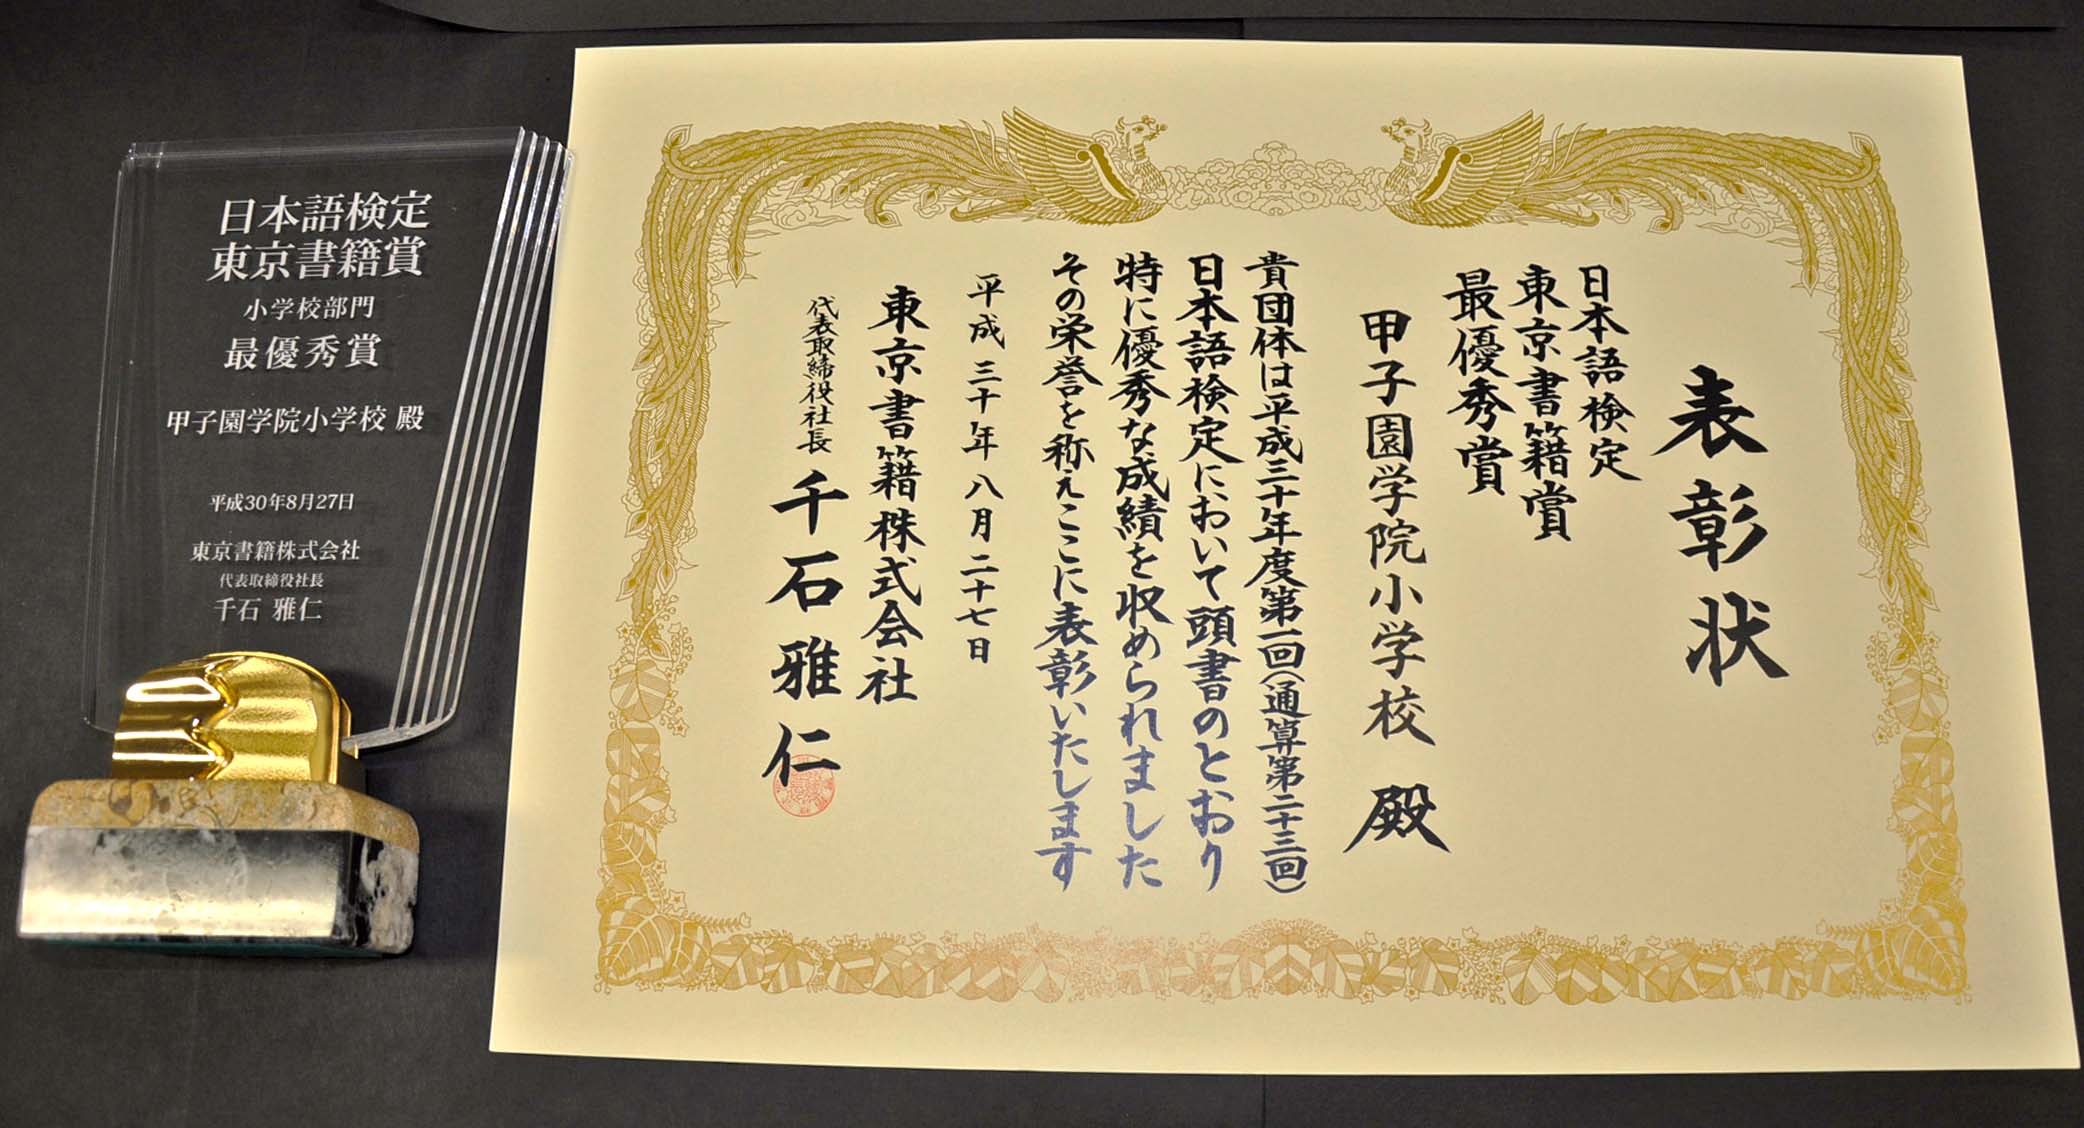 日本語検定
東京書籍賞
小学校部門
最優秀賞
甲子園学院小学校 殿
平成30年8月27日
東京書籍株式会社
代表取締役社長
千石 雅仁
表彰状
日本語検定
東京書籍賞
最優秀賞
甲子園学院小学校 殿
貴団体は平成三十年度第一回(通算第二十三回)
日本語検定において頭書のとおり
特に優秀な成績を収められました
その栄誉を称えここに表彰いたします
平成三十年八月二十七日
東京書籍株式会社
代表取締役社長 千石雅仁